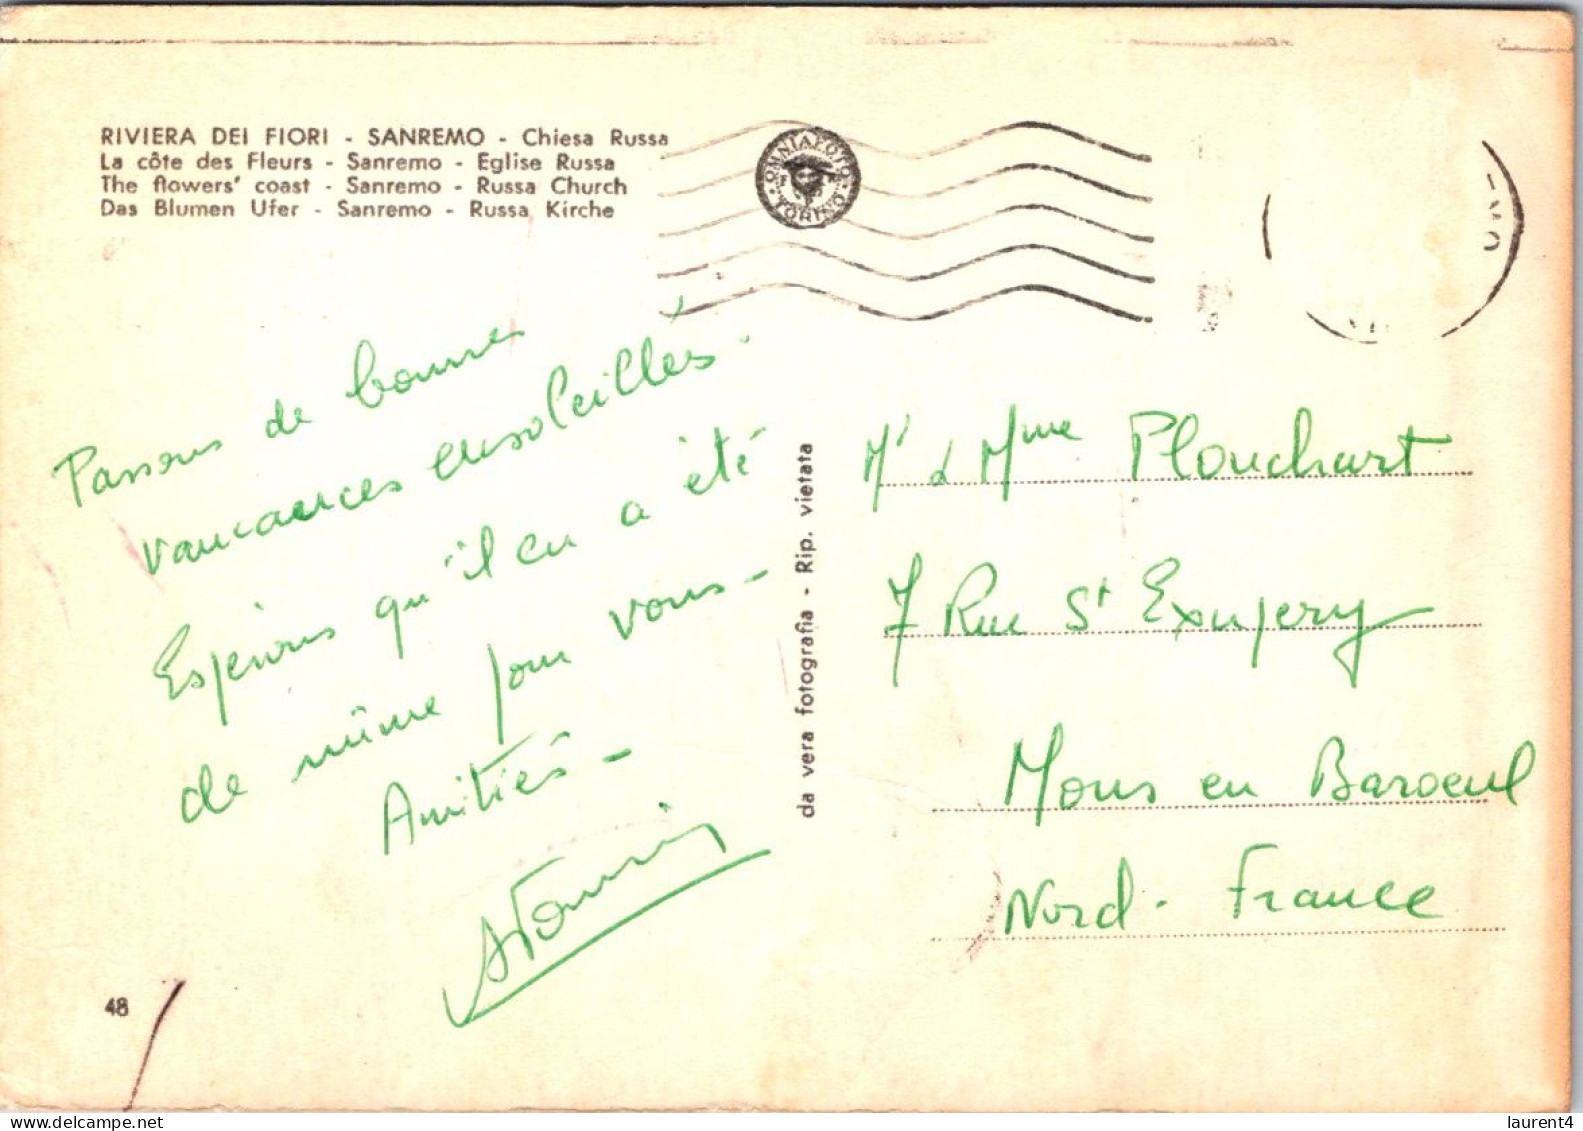 RIVIERA DEI FIORI - SANREMO - Chiesa Russa
La côte des Fleurs - Sanremo - Eglise Russa
The flowers' coast - Sanremo - Russa Church
Das Blumen Ufer - Sanremo - Russa Kirche
OMNIAFOTO
TORINO
Passons de bonnes
vancances ensoleillés.
Espérons qu'il en a été
de même pour vous -
Amitiés -
da vera fotografia - Rip. vietata
Mr & Mme Plouchart
7 Rue St Exupery
Mons en Baroeul
Nord - France
48
laurent4